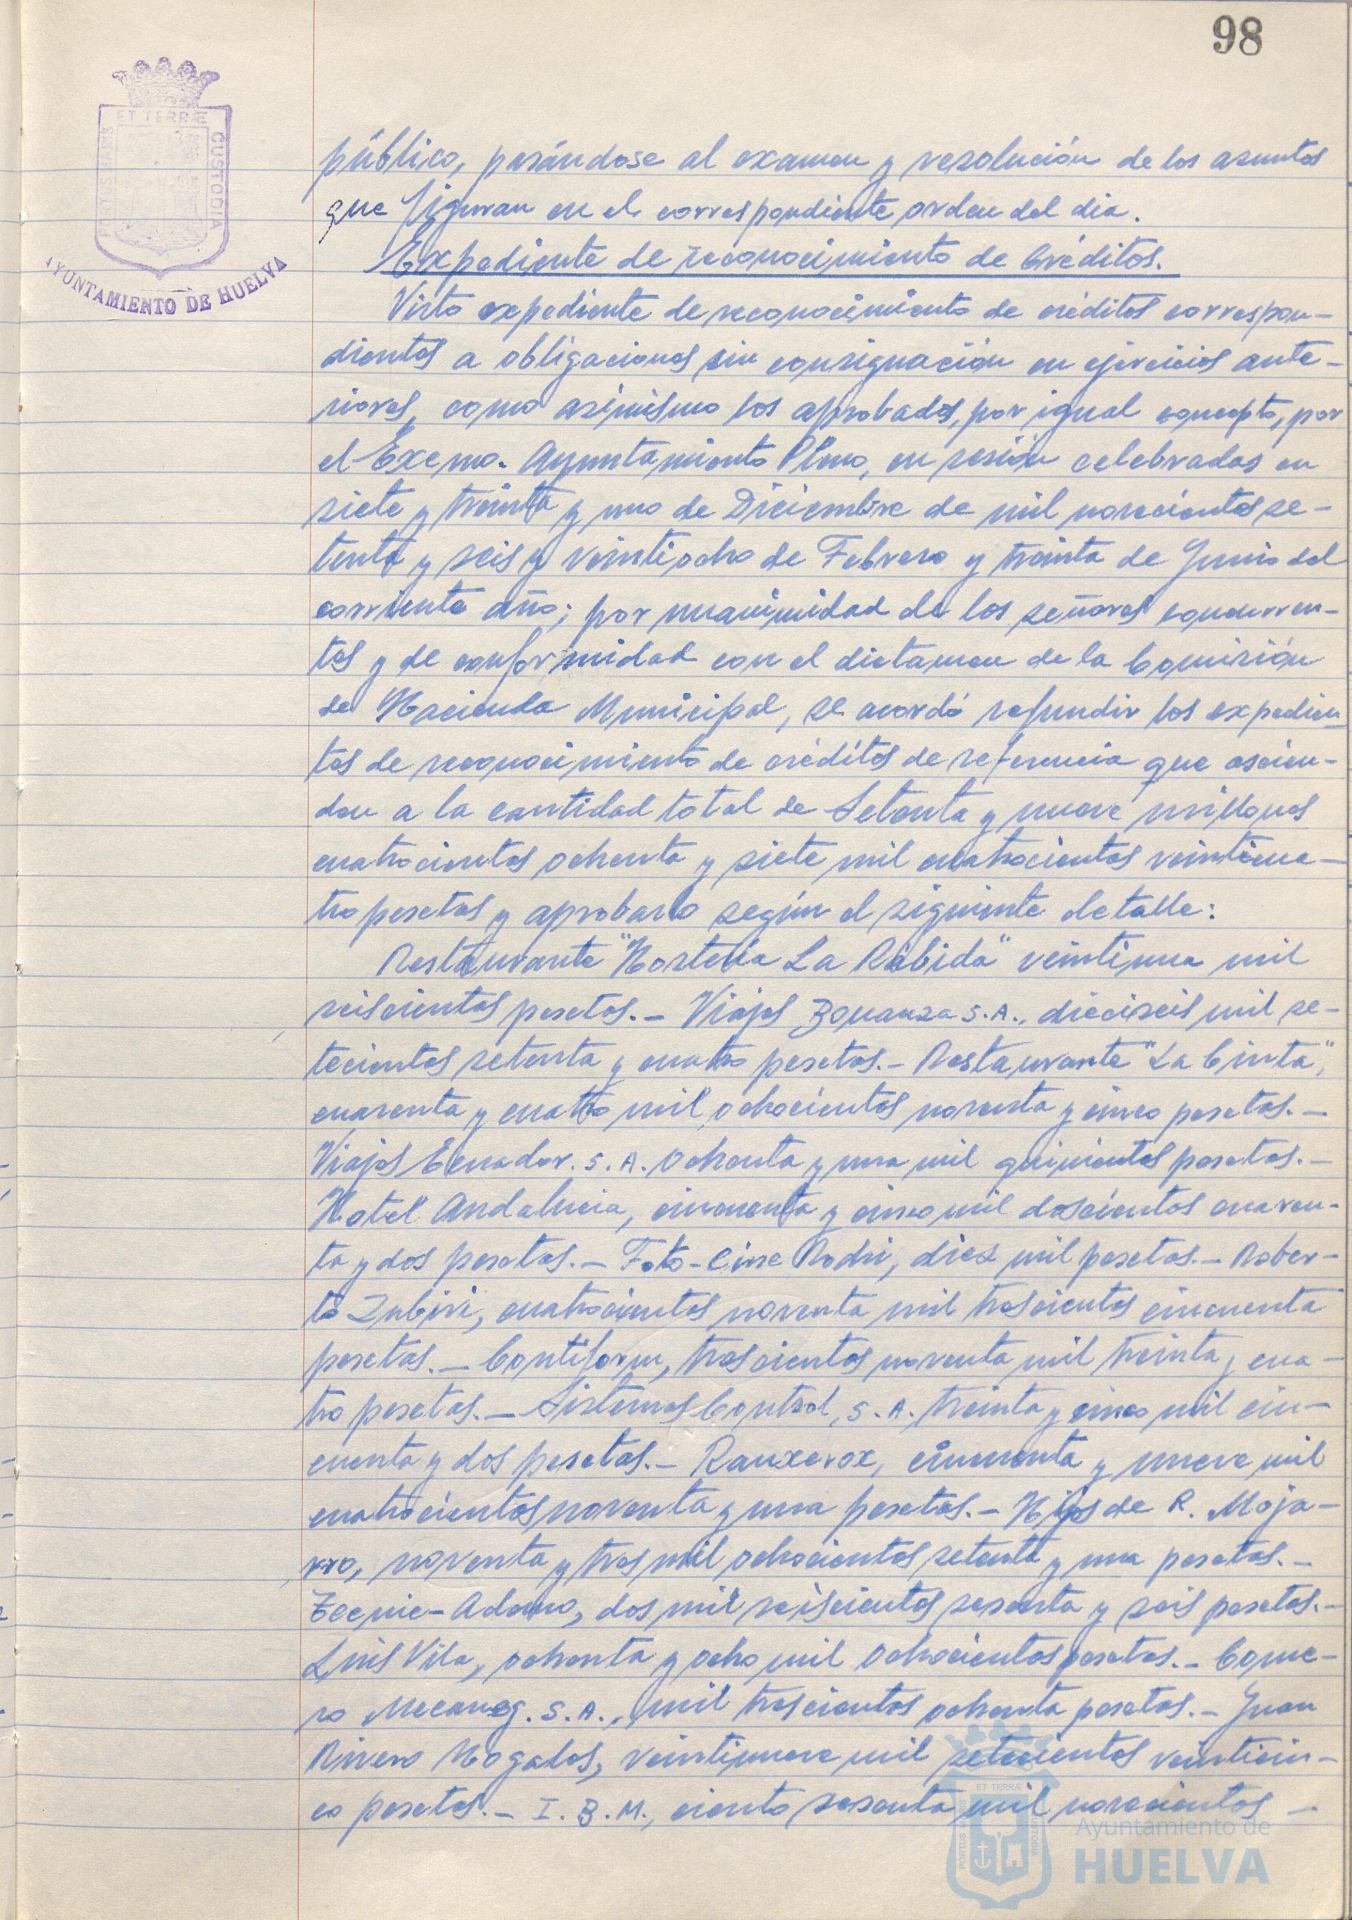 98
ET TERRÆ
PORTUS MARIS
CUSTODIA
AYUNTAMIENTO DE HUELVA
público, pasándose al examen y resolución de los asuntos
que figuran en el correspondiente orden del día.
Expediente de reconocimiento de Créditos.
Visto expediente de reconocimiento de créditos correspon-
dientes a obligaciones sin consignación en ejercicios ante-
riores, como asimismo los aprobados, por igual concepto, por
el Excmo. Ayuntamiento Pleno, en sesión celebradas en
siete y treinta y uno de Diciembre de mil novecientos se-
tenta y seis y veintiocho de Febrero y treinta de Junio del
corriente año; por unanimidad de los señores concurren-
tes y de conformidad con el dictamen de la Comisión
de Hacienda Municipal, se acordó refundir los expedien
tes de reconocimiento de créditos de referencia que ascien-
den a la cantidad total de Setenta y nueve millones
cuatrocientos ochenta y siete mil cuatrocientos veinticua-
tro pesetas y aprobarlo según el siguiente detalle:
Restaurante "Hostería La Rábida" veintiuna mil
seiscientas pesetas.- Viajes Bonanza S.A., dieciseis mil se-
tecientos setenta y cuatro pesetas.- Restaurante "La Cinta",
cuarenta y cuatro mil ochocientos noventa y cinco pesetas.-
Viajes Ecuador. S.A. ochenta y una mil quinientos pesetas.-
Hotel Andalucia, cincuenta y cinco mil doscientos cuaren-
ta y dos pesetas.- Foto-Cine Rodri, diez mil pesetas.- Rober-
to Zubiri, cuatrocientos noventa mil trescientos cincuenta
pesetas.- Contiform, trescientos noventa mil treinta y cua-
tro pesetas.- Sistemas Control, S.A. treinta y cinco mil cin-
cuenta y dos pesetas.- Ranxerox, cincuenta y nueve mil
cuatrocientos noventa y una pesetas.- Hijos de R. Moja-
rro, noventa y tres mil ochocientos setenta y una pesetas.-
Tecnic-Adamo, dos mil seiscientos sesenta y seis pesetas.-
Luis Vila, ochenta y ocho mil ochocientos pesetas.- Come-
ro Mecanog. S.A., mil trescientos ochenta pesetas.- Juan
Rivero Nogales, veintinueve mil setecientos veinticin-
co pesetas.- I.B.M., ciento sesenta mil novecientos -
ET TERRÆ
PORTUS MARIS
CUSTODIA
Ayuntamiento de
HUELVA